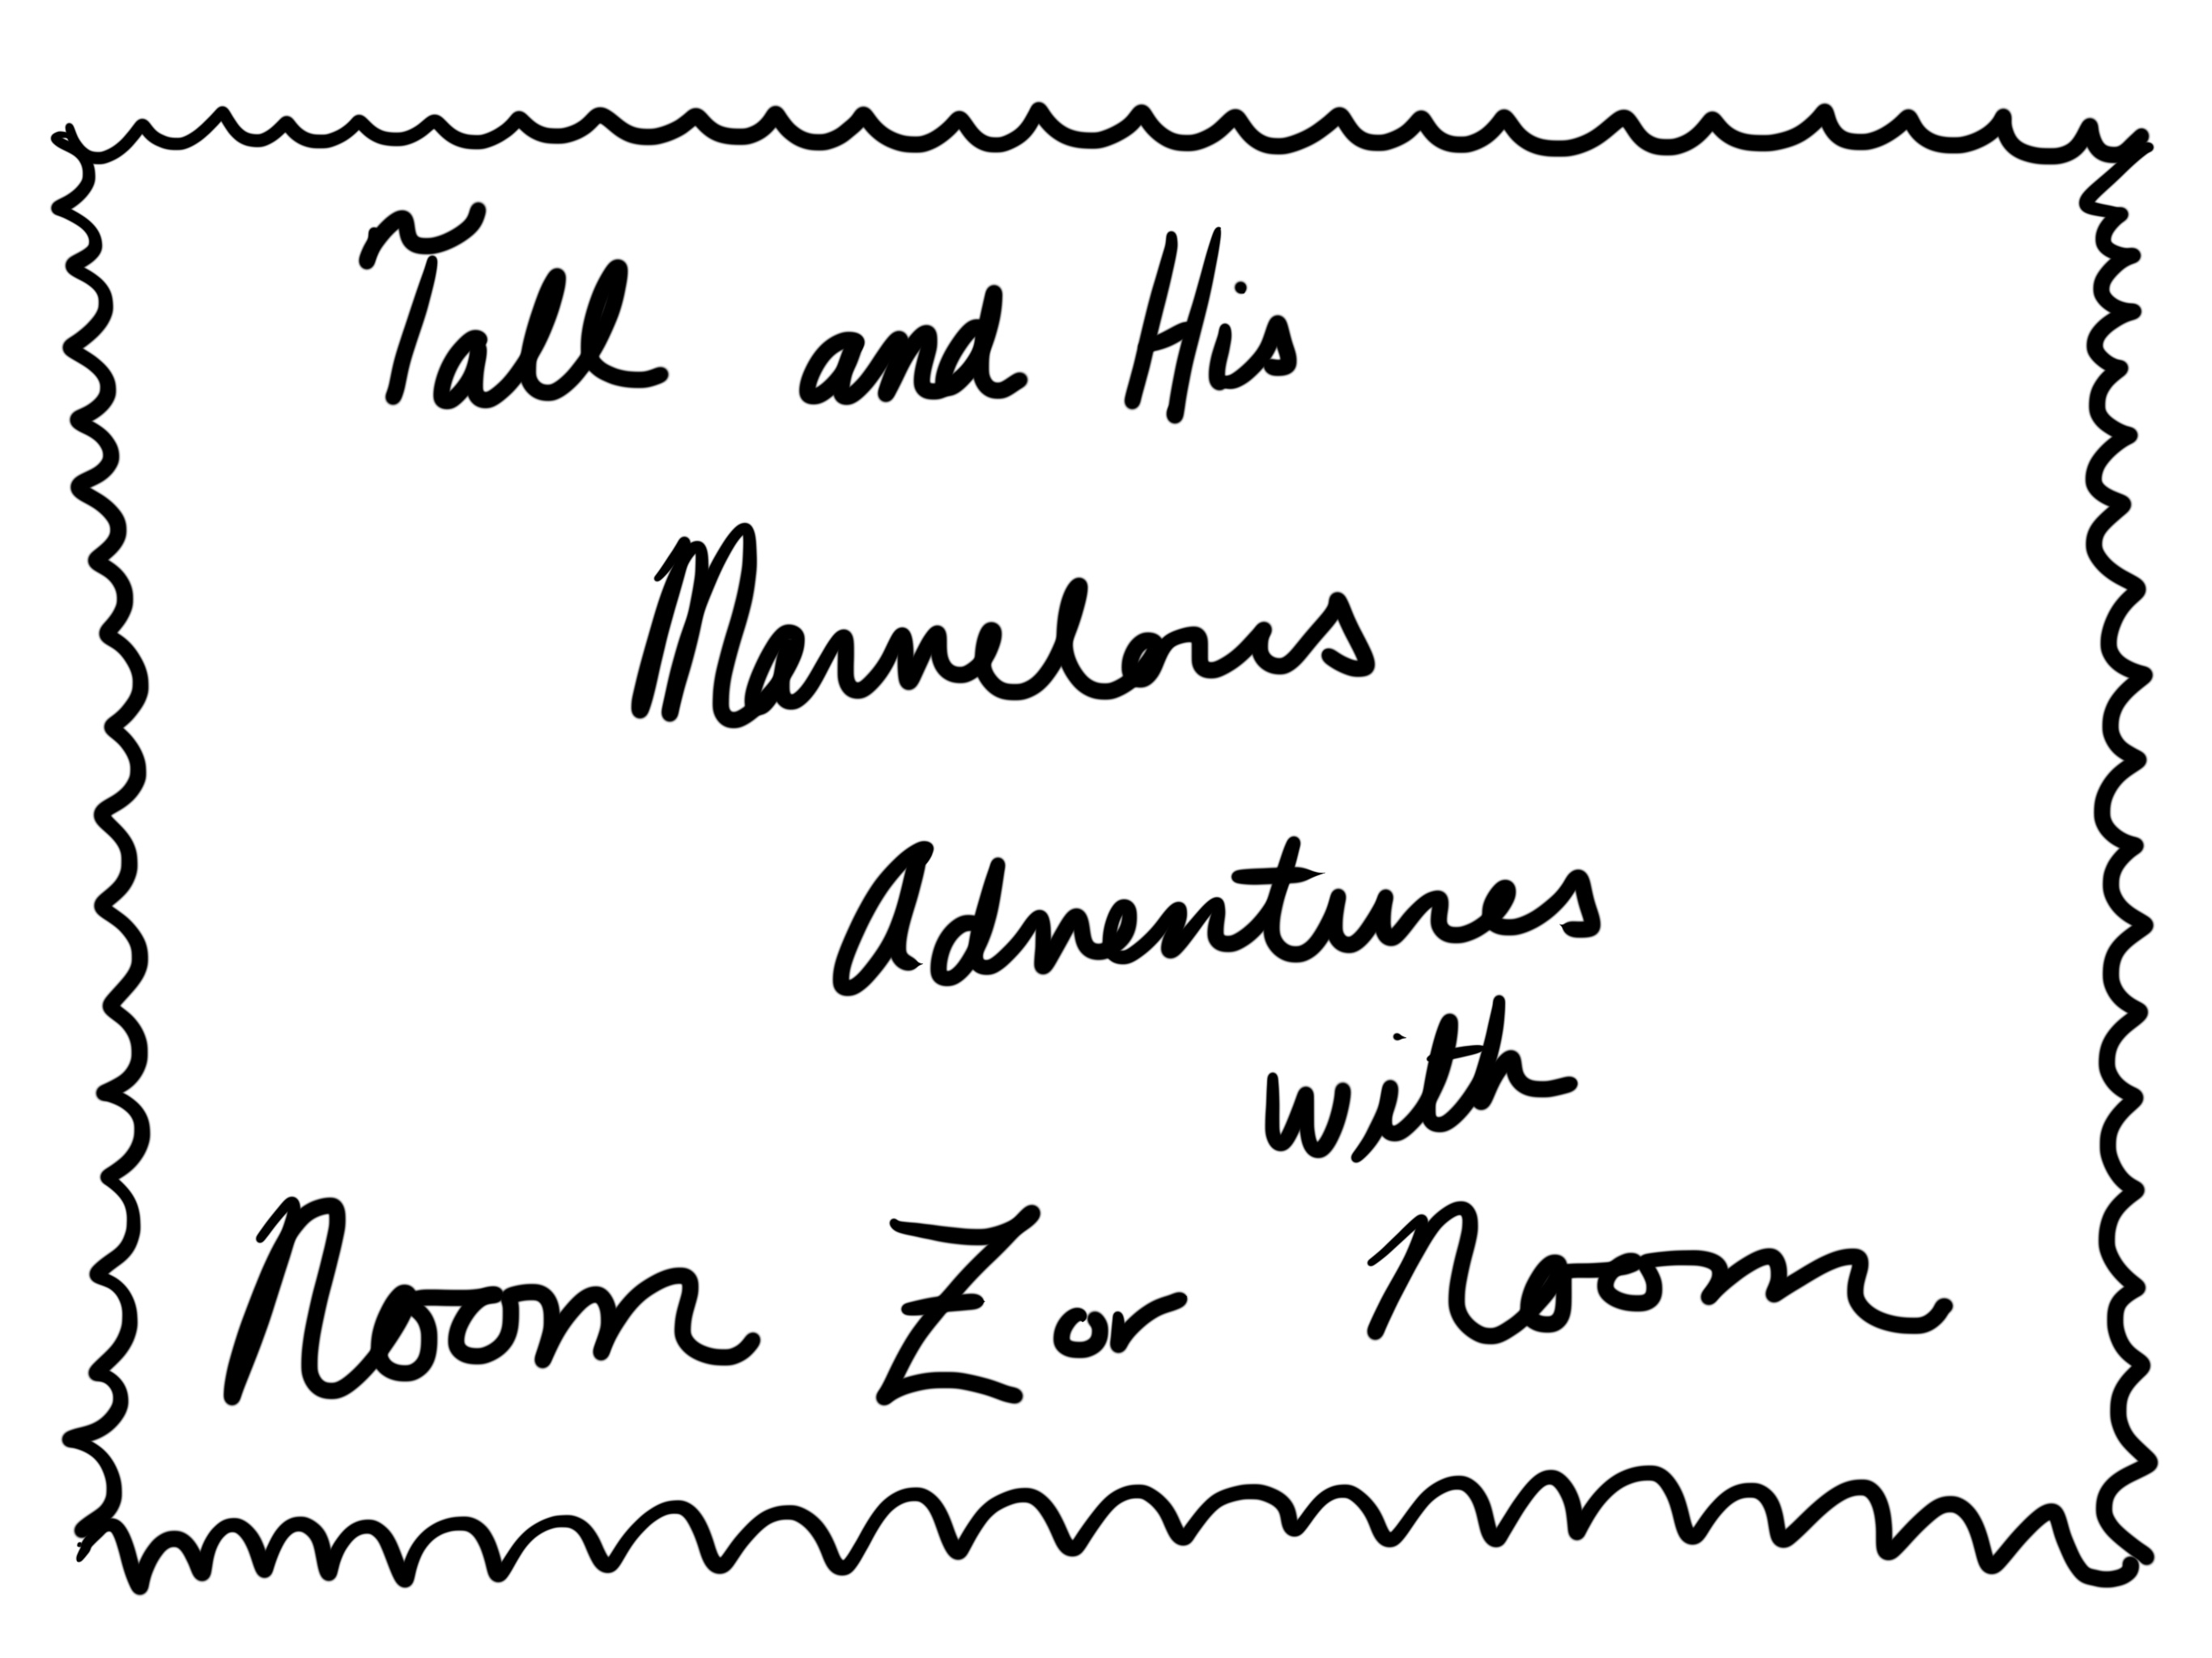 Tall and His
Marvelous
Adventures
with
Noom Z or Noom